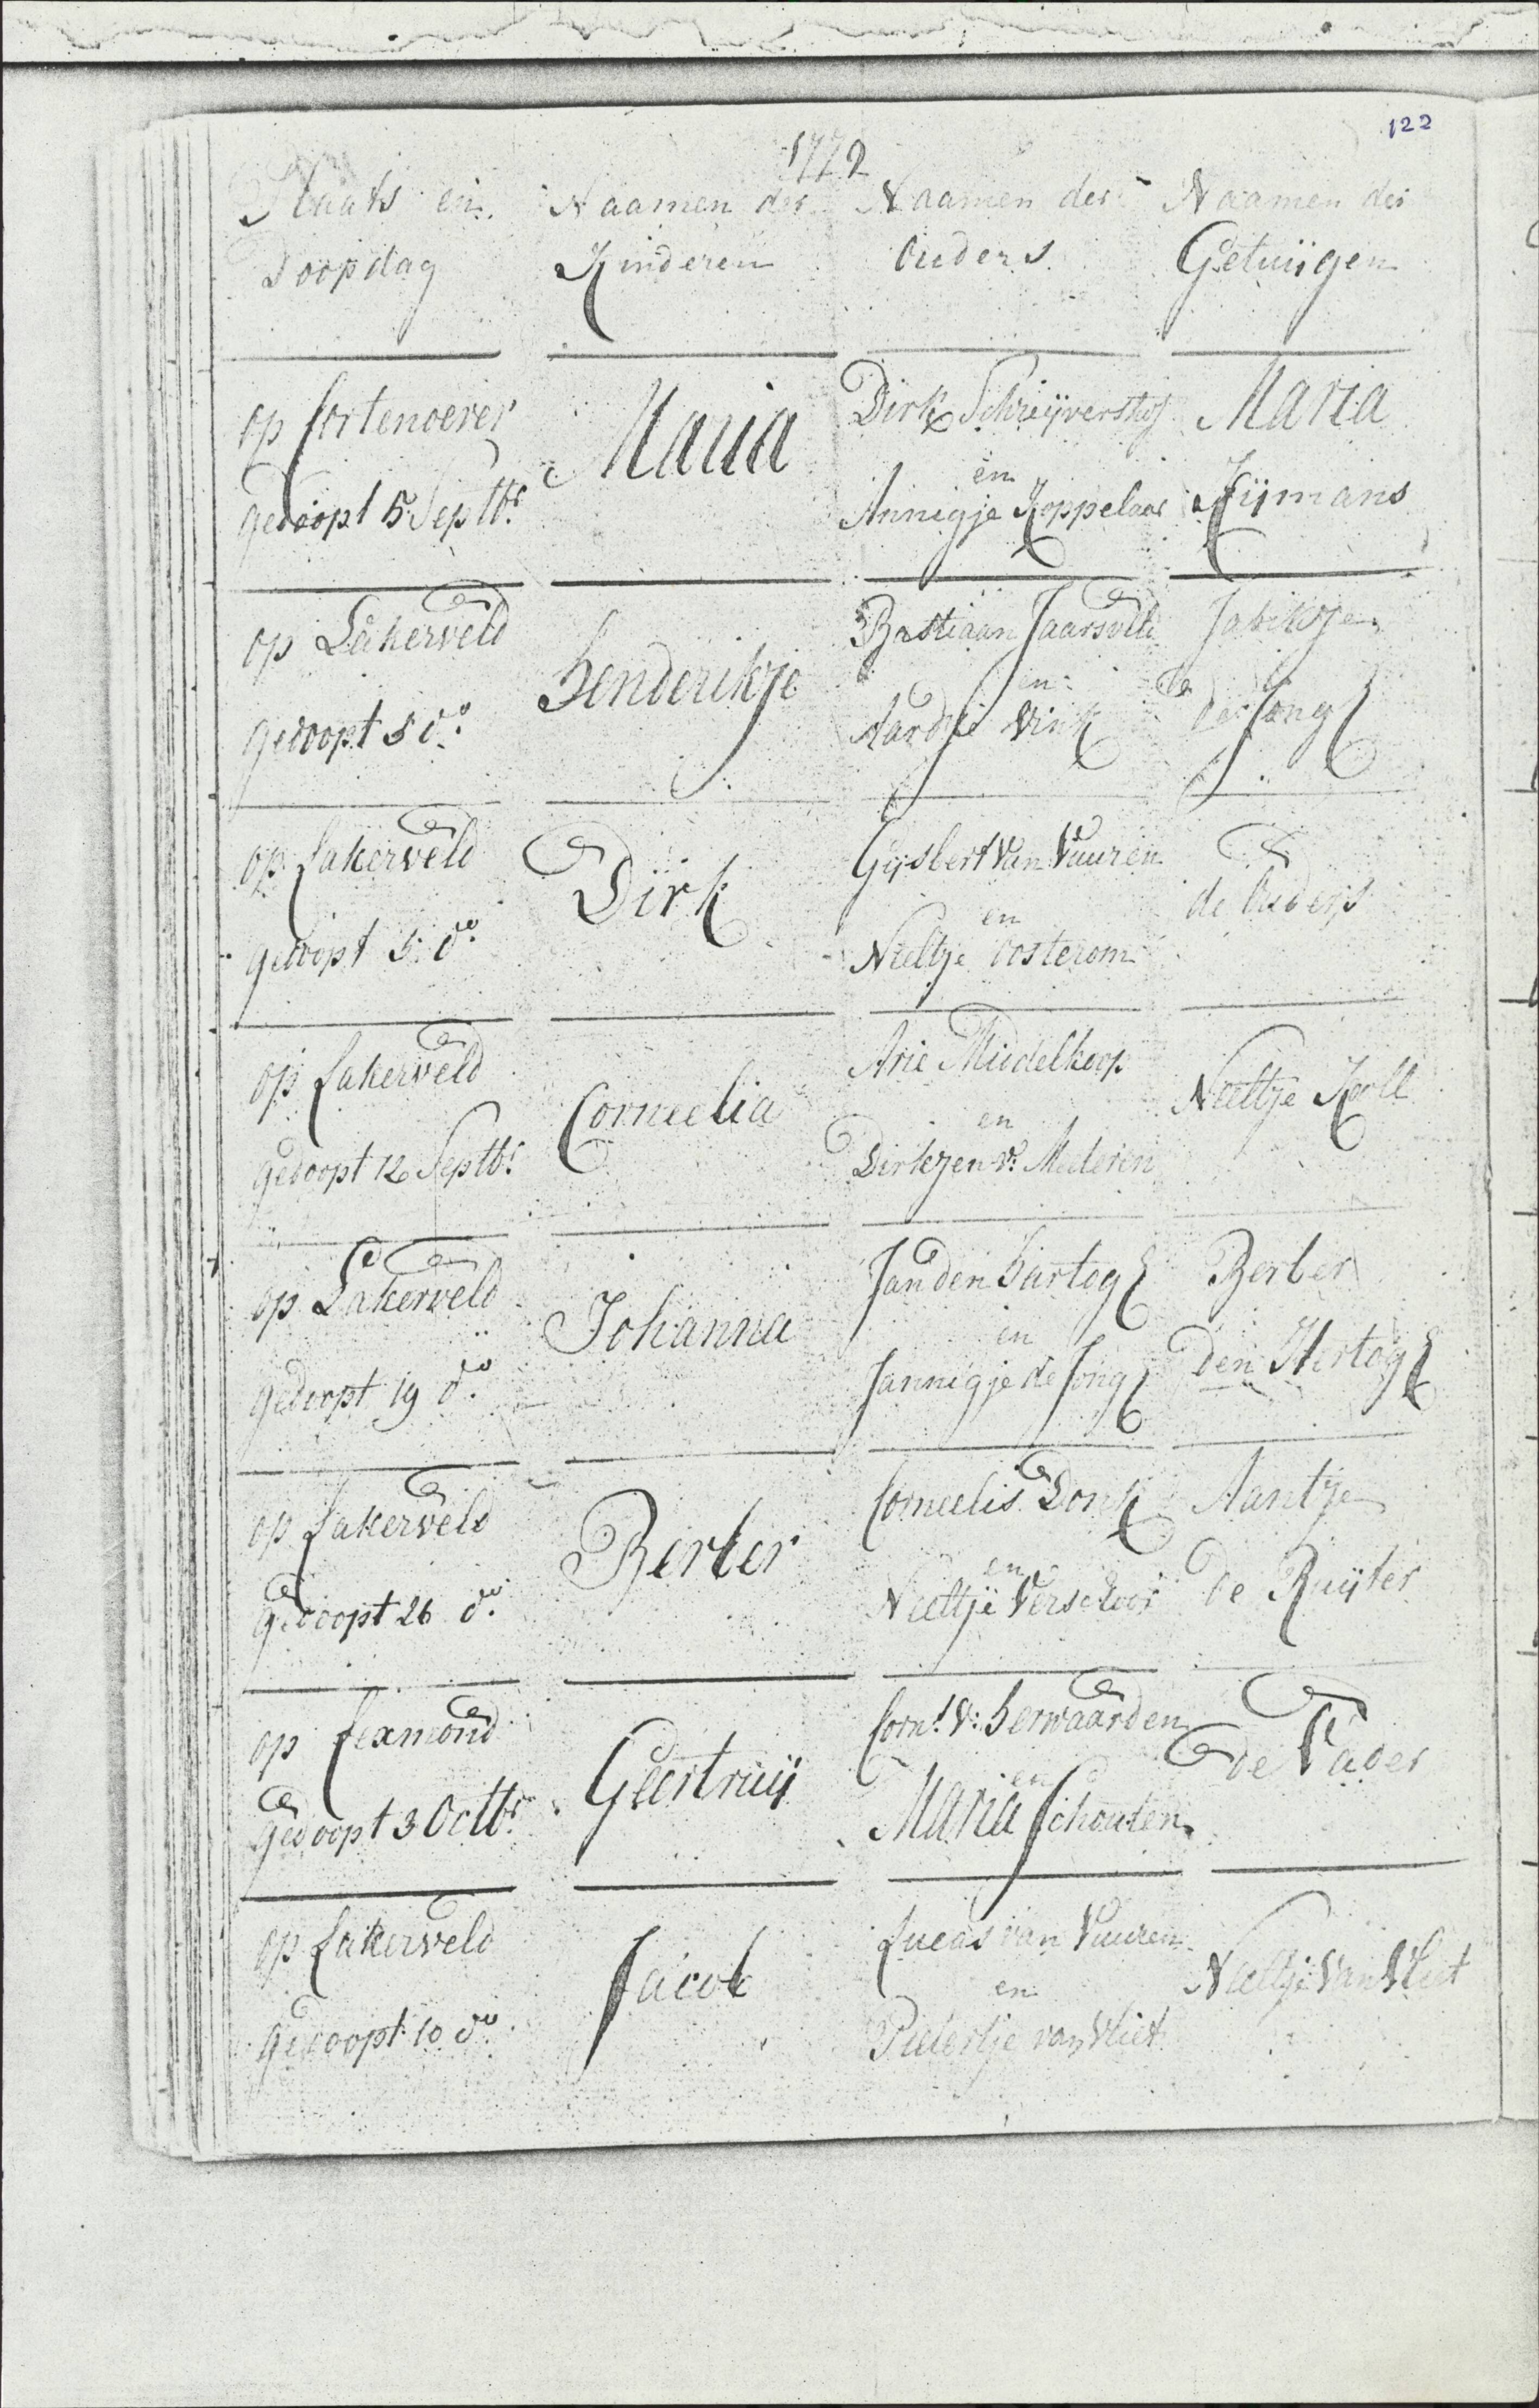 122
1772
Plaats en Naamen der Naamen der Naamen der
Doopdag Kinderen Ouders Getuijgen
op Cortenoever
gedoopt 5 Septbr
Maria
Dirk Schreijvershof
en
Annigje Koppelaar
Maria
Kijmans
op Lakerveld
gedoopt 5 do
Henderikje
Bastiaan Jaarsveld
en
Aardje Vink
de Jong
op Lakerveld
gedoopt 5 do
Dirk
Gijsbert van Vuuren
en
Neeltje Oosterom
de Ouders
op Lakerveld
gedoopt 12 Septbr
Corneelia
Arie Middelkoop
en
Dirkjen v. Mederen
Neeltje Kool
op Lakerveld
gedoopt 19 do
Johanna
Jan den Hartog
en
Jannigje de Jong
Berber
Den Hertog
op Lakerveld
gedoopt 26 do
Berber
Corneelis Donk
en
Neeltje Verschoor
Aantje
De Ruijter
op Lexmond
gedoopt 3 Octbr
Geertruij
Corns v: Herwaarden
en
Maria Schouten
de Vader
op Lakerveld
gedoopt 10 do
Jacob
Lucas van Vuuren
en
Pietertje van Vliet
Neeltje van Vliet